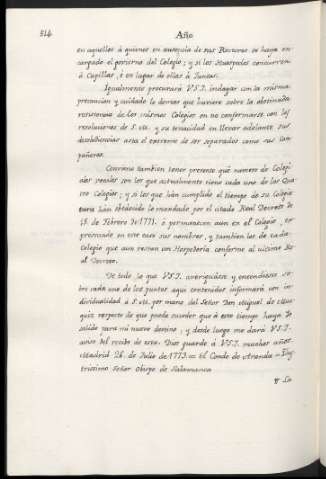 514 Año
en aquellos á quienes en ausencia de sus Rectores se haya en-
cargado el govierno del Colegio; y si los Huespedes concurren
á Capillas, ó en lugar de ellas á Juntas.
Igualmente procurará V.S.I. indagar con la misma
precaucion y cuidado lo demas que huviere sobre la obstinada
resistencia de los mismos Colegios en no conformarse con las
resoluciones de S. M. y su tenacidad en llevar adelante sus
desobediencias asta el extremo de ser separados como sus com-
pañeros.
Conviene tambien tener presente qué numero de Colegi-
ales reales son los que actualmente tiene cada uno de los Qua-
tro Colegios; y si los que han cumplido el tiempo de su Colegia-
tura han obedecido lo mandado por el citado Real Decreto de
15. de Febrero de 1771. ó permanecen aun en el Colegio, ex-
presando en este caso sus nombres, y tambien los de cada
Colegio que aun esten en Hospederia conforme al ultimo Re-
al Decreto.
De todo lo que V.S.I. averiguáse y entendiese so-
bre cada uno de los puntos aqui contenidos informará con in-
dividualidad á S. M. por mano del Señor Don Miguel de Muz-
quiz respecto de que puede suceder que á este tiempo haya Yo
salido para mi nuevo destino, y desde luego me dará V.S.I.
aviso del recibo de esta. Dios guarde á V.S.I. muchos años
Madrid 26. de Julio de 1773. = El Conde de Aranda = Ilus-
trisimo Señor Obispo de Salamanca